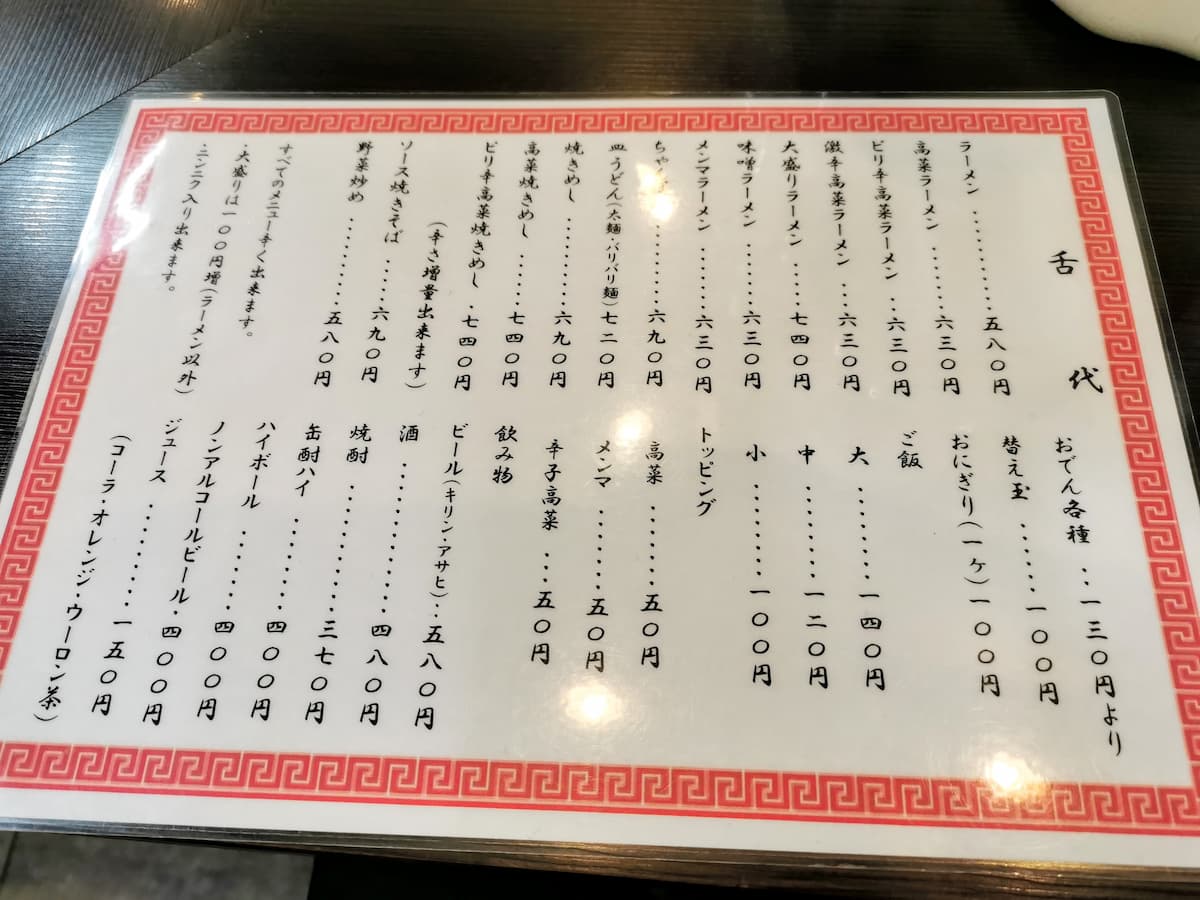 舌代
ラーメン ・・・・・・・・・五八〇円
高菜ラーメン ・・・・・・六三〇円
ピリ辛高菜ラーメン ・・六三〇円
激辛高菜ラーメン ・・・六三〇円
大盛りラーメン ・・・・七四〇円
味噌ラーメン ・・・・・・六三〇円
メンマラーメン ・・・・・六三〇円
・・・・・・・六九〇円
皿うどん(太麺・バリバリ麺)七二〇円
焼きめし ・・・・・・・・六九〇円
高菜焼きめし ・・・・・七四〇円
ピリ辛高菜焼きめし ・七四〇円
(辛さ増量出来ます)
ソース焼きそば ・・・・六九〇円
野菜炒め ・・・・・・・・五八〇円
すべてのメニュー辛く出来ます。
・大盛りは一〇〇円増(ラーメン以外)
・ニンニク入り出来ます。
おでん各種 ・・・一三〇円より
替え玉 ・・・・・・・一〇〇円
おにぎり(一ヶ)一〇〇円
ご飯
大 ・・・・・・・・一四〇円
中 ・・・・・・・・一二〇円
小 ・・・・・・・・一〇〇円
トッピング
高菜 ・・・・・・・五〇円
メンマ ・・・・・・五〇円
辛子高菜 ・・・五〇円
飲み物
ビール(キリン・アサヒ)・・五八〇円
酒 ・・・・・・・・・・・四八〇円
焼酎 ・・・・・・・・・三七〇円
缶酎ハイ ・・・・・・・四〇〇円
ハイボール ・・・・・・四〇〇円
ノンアルコールビール・四〇〇円
ジュース ・・・・・・・・一五〇円
(コーラ・オレンジ・ウーロン茶)